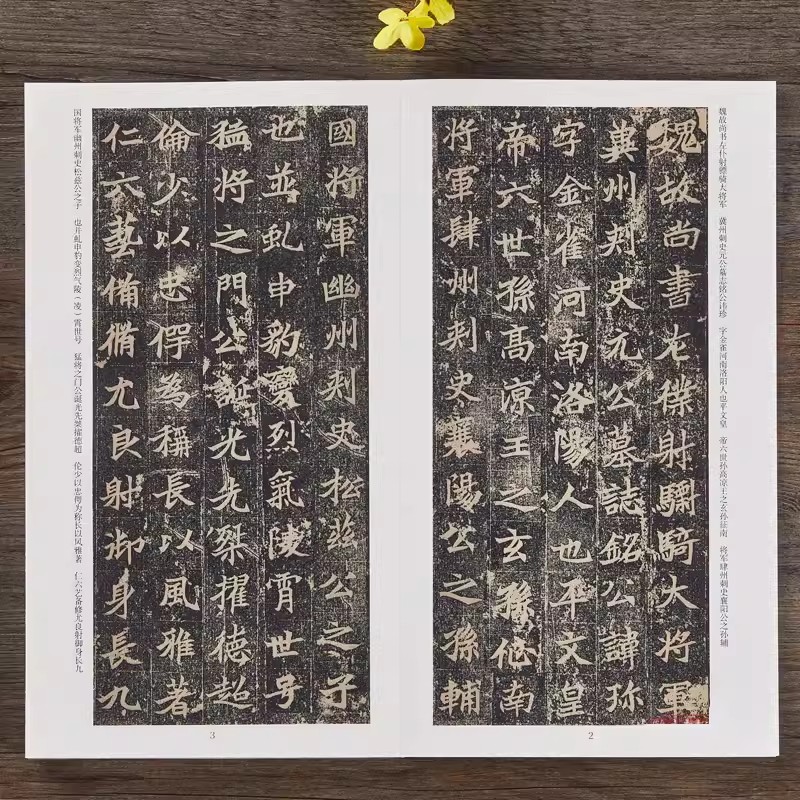 魏故尚书左仆射骠骑大将军 冀州刺史元公墓志铭公讳珍 字金雀河南洛阳人也平文皇 帝六世孙高凉王之玄孙征南 将军肆州刺史襄阳公之孙辅
魏故尚書左僕射驃騎大將軍
冀州刾史元公墓誌銘公諱珎
字金雀河南洛陽人也平文皇
帝六世孫高凉王之玄孫征南
將軍肆州刾史襄陽公之孫輔
2
國將軍幽州刾史松茲公之子
也並虬申豹變烈氣陵霄世号
猛將之門公誕光先桀擢德超
倫少以忠愕為稱長以風雅著
仁六藝俻脩尤良射御身長九
国将军幽州刺史松兹公之子 也并虬申豹变烈气陵（凌）霄世号 猛将之门公诞光先桀擢德超 伦少以忠愕为称长以风雅著 仁六艺备修尤良射御身长九
3